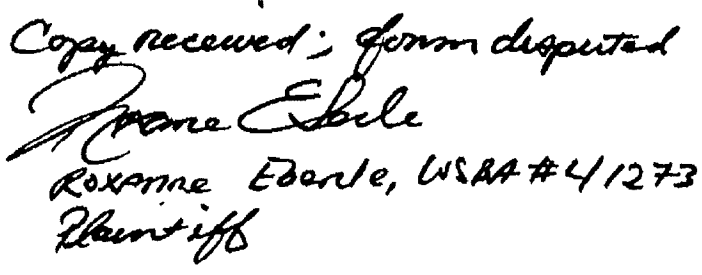 Copy received; form disputed
Roxanne Eberle
Roxanne Eberle, WSBA #41273
Plaintiff